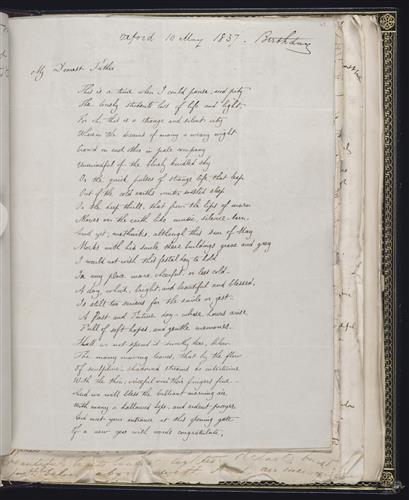 Oxford 10 May 1837. Birthday
My Dearest Father
This is a time when I could pause, and pity
The lonely students lot of life and light,
For oh, this is a strange and silent city
Wherein the dreams of many a weary night
Crowd on each other in pale company
Unmindful of the kindly sky
Or the quick pulses of strange life, that leap
Out of the cold earths winter sleep
In the deep thrills, that from the lips of morn
Moves on the earth like music, silence-born.
And yet, methinks, although this sun of May
Mocks with his smile these buildings grave and grey
I would not wish this festal day to hold
In any place more cheerful, or less cold.
A day, which, bright, and beautiful and blessed,
Is still too serious for the smile or jest.
A Past and Future day - whose hours arise
Full of soft hopes, and gentle memories.
Shall we not spend it sweetly here, below
The many moving leaves, that by the flow
Of sculpture-shadowed streams do intertwine
With the thin, voiceful
And we will bless the brilliant morning air,
With many a hallowed hope, and ardent prayer
And meet your entrance at this glowing gate
Of a new year with words congratulate,